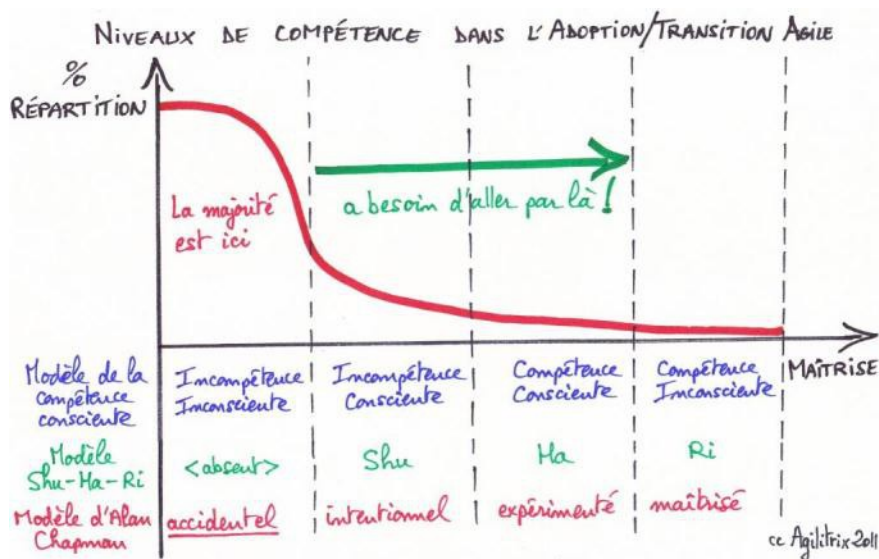 NIVEAUX DE COMPÉTENCE DANS L'ADOPTION/TRANSITION AGILE
%
RÉPARTITION
La majorité
est ici
a besoin d'aller par là !
MAÎTRISE
Modèle de la
compétence
consciente
Incompétence
Inconsciente
Incompétence
Consciente
Compétence
Consciente
Compétence
Inconsciente
Modèle
Shu-Ha-Ri
<absent>
Shu
Ha
Ri
Modèle d'Alan
Chapman
accidentel
intentionnel
expérimenté
maîtrisé
cc Agilitrix 2011